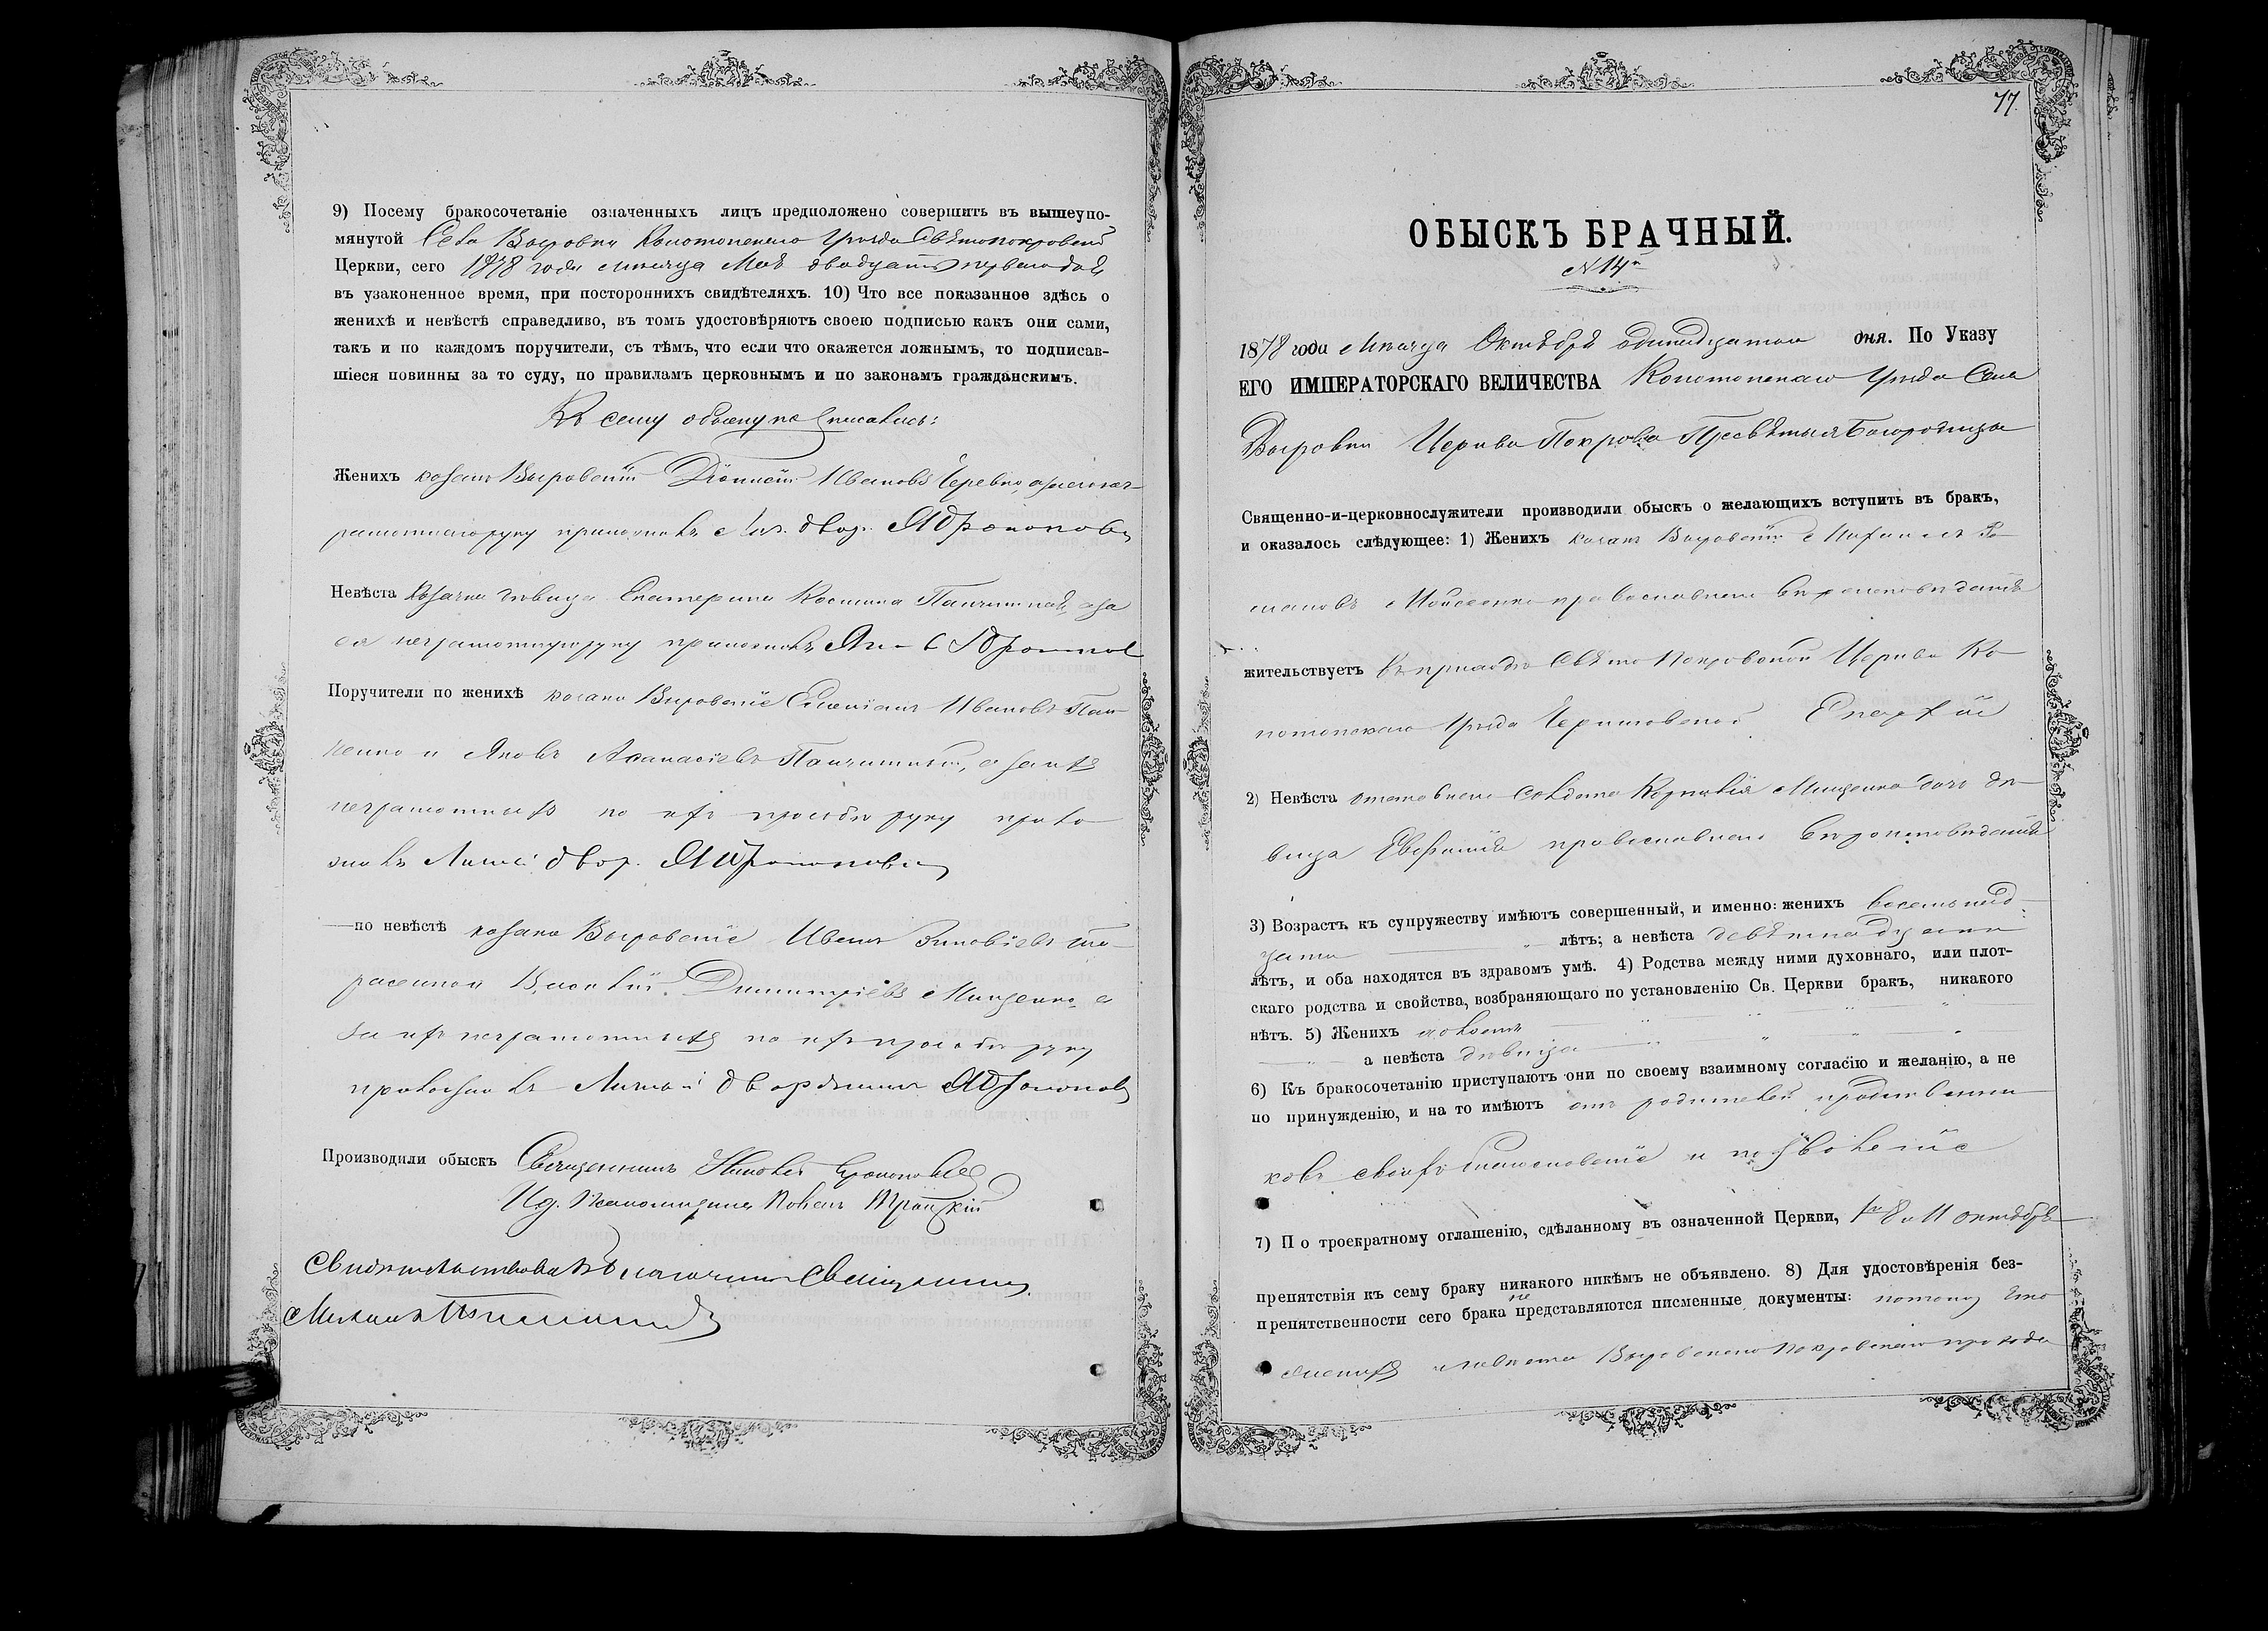 9) Посему бракосочетаніе означенныхъ лицъ предположено совершить въ вышеупо-
мянутой Села Выровки Конотопскаго Уѣзда Святопокровской
Церкви, сего 1878 года Мѣсяца Мая двадцать перваго дня
въ узаконенное время, при постороннихъ свидѣтеляхъ. 10) Что все показанное здѣсь о
женихѣ и невѣстѣ справедливо, въ томъ удостовѣряютъ своею подписью какъ они сами,
такъ и по каждомъ поручители, съ тѣмъ, что если что окажется ложнымъ, то подписав-
шіеся повинны за то суду, по правиламъ церковнымъ и по законамъ гражданскимъ.
Къ сему обыску подписались:
Женихъ козакъ Выровскій Діонисій Ивановъ Черевко, а за него не-
грамотнаго руку приложилъ двор.
Невѣста козачка дѣвица Екатерина Космина а за
ея неграмотную руку приложилъ
Поручители по женихѣ козаки Выровскіе Ивановъ Пан-
ченко и Яковъ Аѳанасіевъ а за нихъ
неграмотныхъ по ихъ прозьбѣ руку прило-
жилъ двор.
—по невѣстѣ козаки Выровскіе Иванъ Зиновіевъ
Димитріевъ Мищенко а
за ихъ неграмотныхъ по ихъ прозьбѣ руку
приложилъ дворянинъ
Производили обыскъ Священникъ
И.д. Псаломщика Павелъ Троицкій
Свидѣтельствовалъ Благочинный Священникъ
Михаилъ
77.
ОБЫСКЪ БРАЧНЫЙ.
№ 14й
1878 года Мѣсяца Октября одинадцатаго дня. По Указу
ЕГО ИМПЕРАТОРСКАГО ВЕЛИЧЕСТВА Конотопскаго Уѣзда Села
Выровки Церкви Покрова Пресвятыя Богородицы
Священно-и-церковнослужители производили обыскъ о желающихъ вступить въ бракъ,
и оказалось слѣдующее: 1) Женихъ козакъ Выровскій Михаилъ Ро-
мановъ Моисеенко православнаго вѣроисповѣданія
жительствуетъ въ приходѣ Свято Покровской Церкви Ко-
нотопскаго Уѣзда Черниговской Епархіи
2) Невѣста отставнаго Солдата Корнилія Мищенка дочь дѣ-
вица Евфимія православнаго вѣроисповѣданія
3) Возрастъ къ супружеству имѣютъ совершенный, и именно: женихъ восемьнад-
цати лѣтъ; а невѣста девятнадцати
лѣтъ, и оба находятся въ здравомъ умѣ. 4) Родства между ними духовнаго, или плот-
скаго родства и свойства, возбраняющаго по установленію Св. Церкви бракъ, никакого
нѣтъ. 5) Женихъ холостъ
а невѣста дѣвица
6) Къ бракосочетанію приступаютъ они по своему взаимному согласію и желанію, а не
по принужденію, и на то имѣютъ отъ родителей и родственни-
ковъ своихъ благословеніе и позволеніе
7) По троекратному оглашенію, сдѣланному въ означенной Церкви, 1го 8 и 11 октября
препятствія къ сему браку никакого никѣмъ не объявлено. 8) Для удостовѣренія без-
препятственности сего брака не представляются писменные документы: потому что
женихъ и невѣста Выровскаго Покровскаго прихода